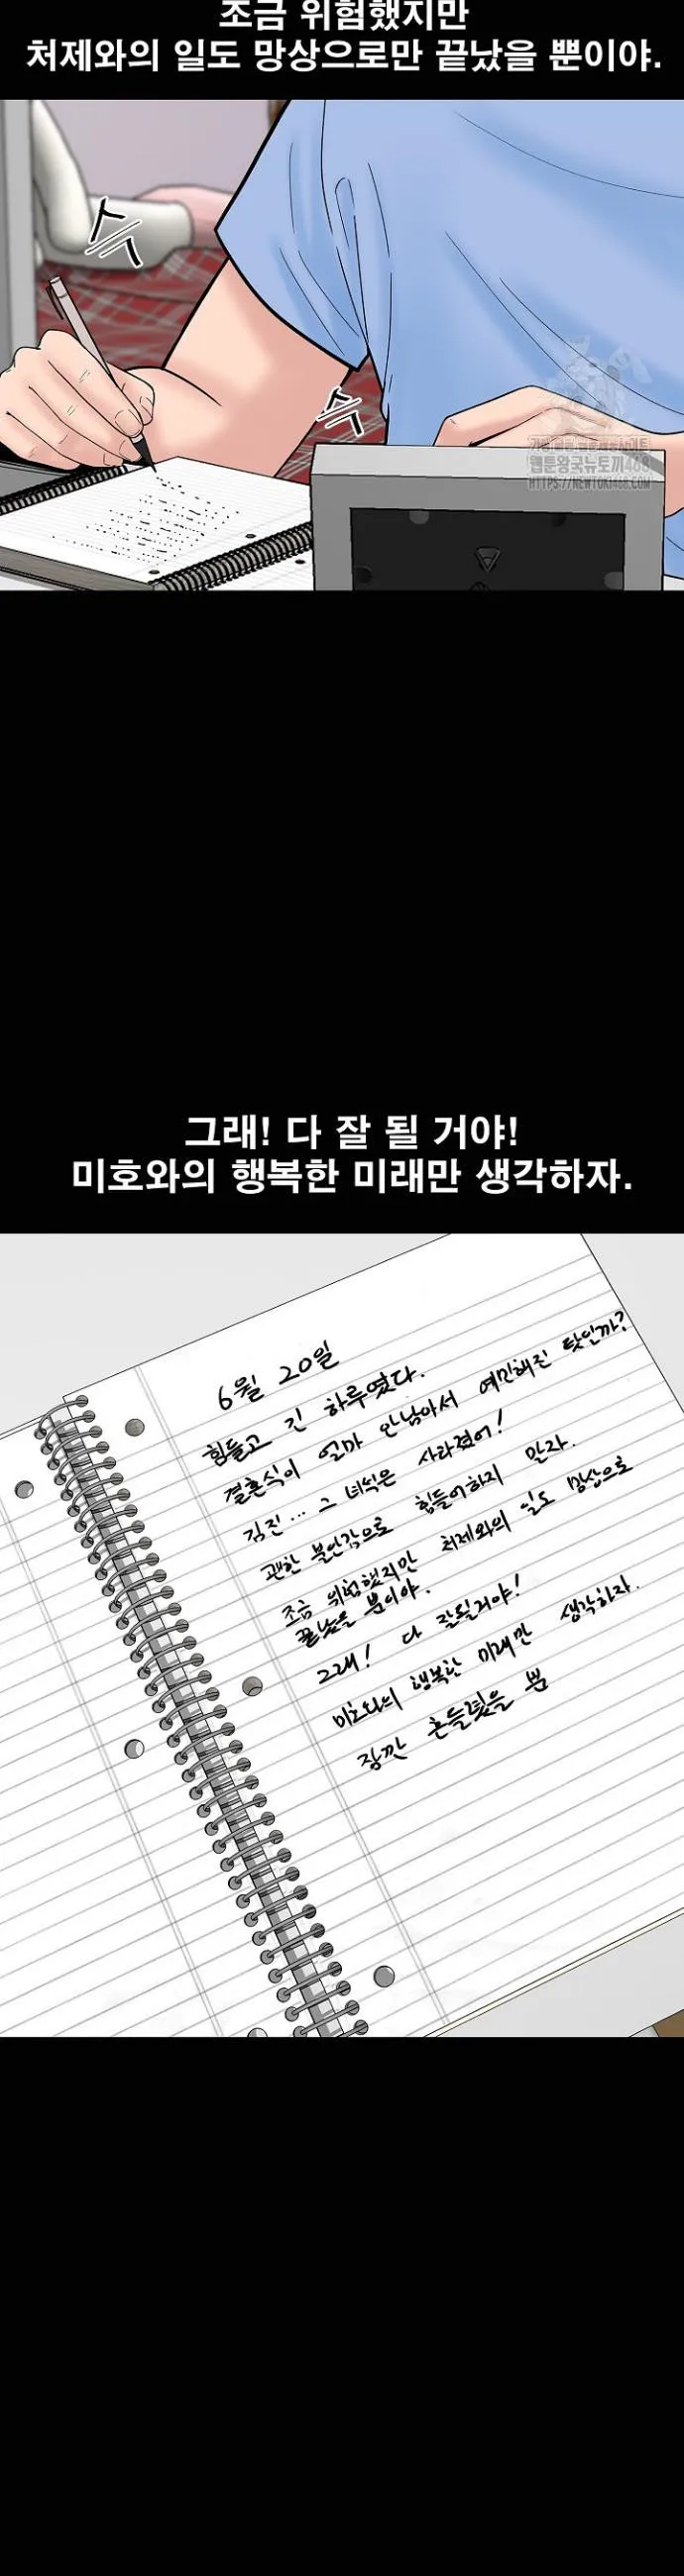 조금 위험했지만
처제와의 일도 망상으로만 끝났을 뿐이야.
스
슥
스
슥
웹툰왕국뉴토끼468
HTTPS://NEWTOKI468
그래! 다 잘 될 거야!
미호와의 행복한 미래만 생각하자.
6월 20일
힘들고 긴 하루였다.
결혼식이 얼마 안남아서 예민해진 탓인가?
김진... 그 녀석은 사라졌어!
괜한 불안감으로 힘들어하지 말자.
조금 위험했지만 처제와의 일도 망상으로
끝났을 뿐이야.
그래! 다 잘될거야!
미호와의 행복한 미래만 생각하자.
잠깐 흔들렸을 뿐